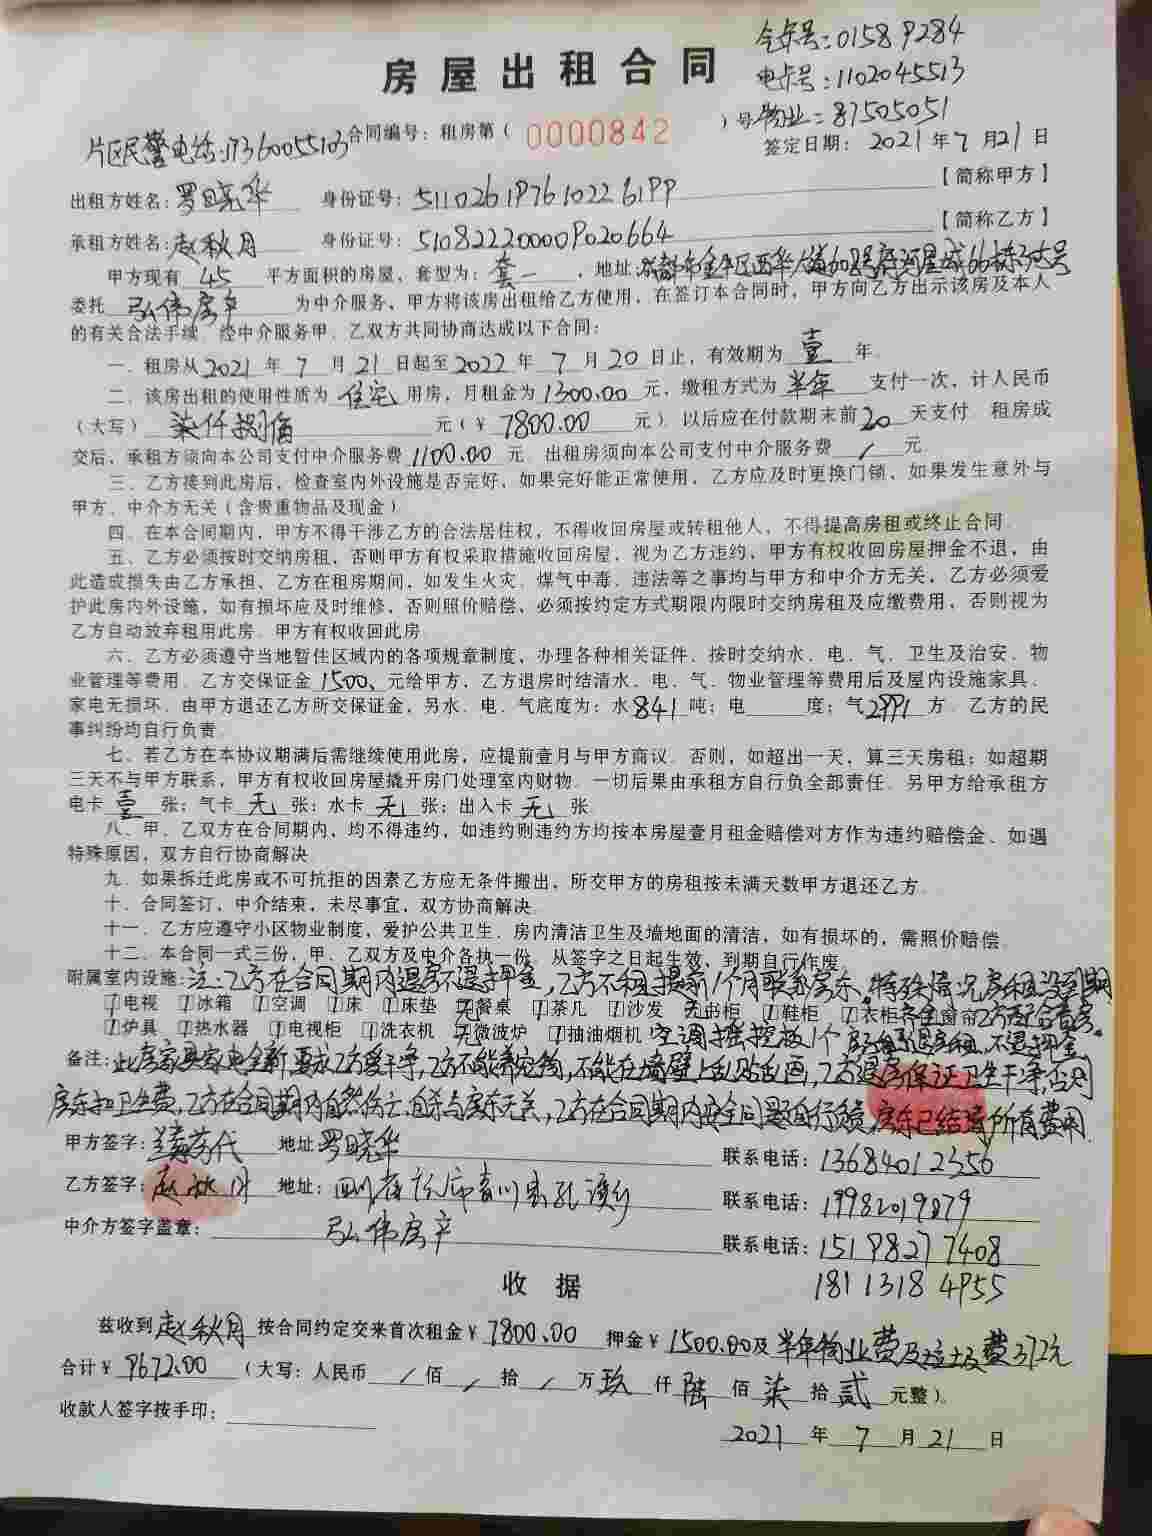 房屋出租合同
气卡号:01589284
电卡号:1102045513
物业:87505051
片区民警电话:17360055103 合同编号:租房第( 0000842 )号
签定日期:2021年7月21日
出租方姓名:罗晓华 身份证号:511026197610226199 【简称甲方】
承租方姓名:赵秋月 身份证号:510822200009020664 【简称乙方】
甲方现有 45 平方面积的房屋、套型为:套一,地址:成都市金牛区西华大道
委托 弘伟房产 为中介服务,甲方将该房出租给乙方使用,在签订本合同时,甲方向乙方出示该房及本人
的有关合法手续.经中介服务甲、乙双方共同协商达成以下合同:
一、租房从2021年7月21日起至2022年7月20日止,有效期为壹年.
二、该房出租的使用性质为住宅用房,月租金为1300.00元,缴租方式为半年支付一次,计人民币
(大写)柒仟捌佰元(¥7800.00元).以后应在付款期末前20天支付.租房成
交后,承租方须向本公司支付中介服务费1100.00元.出租房须向本公司支付中介服务费/元.
三、乙方接到此房后,检查室内外设施是否完好,如果完好能正常使用,乙方应及时更换门锁,如果发生意外与
甲方、中介方无关(含贵重物品及现金).
四、在本合同期内,甲方不得干涉乙方的合法居住权,不得收回房屋或转租他人,不得提高房租或终止合同.
五、乙方必须按时交纳房租,否则甲方有权采取措施收回房屋,视为乙方违约,甲方有权收回房屋押金不退,由
此造成损失由乙方承担、乙方在租房期间,如发生火灾、煤气中毒、违法等之事均与甲方和中介方无关,乙方必须爱
护此房内外设施,如有损坏应及时维修,否则照价赔偿、必须按约定方式期限内限时交纳房租及应缴费用,否则视为
乙方自动放弃租用此房.甲方有权收回此房.
六、乙方必须遵守当地暂住区域内的各项规章制度,办理各种相关证件、按时交纳水、电、气、卫生及治安、物
业管理等费用.乙方交保证金1500、元给甲方,乙方退房时结清水、电、气、物业管理等费用后及屋内设施家具、
家电无损坏、由甲方退还乙方所交保证金,另水、电、气底度为:水841吨;电 度;气2991方.乙方的民
事纠纷均自行负责.
七、若乙方在本协议期满后需继续使用此房,应提前壹月与甲方商议.否则,如超出一天,算三天房租;如超期
三天不与甲方联系,甲方有权收回房屋撬开房门处理室内财物.一切后果由承租方自行负全部责任.另甲方给承租方
电卡壹张;气卡无张;水卡无张;出入卡无张.
八、甲、乙双方在合同期内,均不得违约,如违约则违约方均按本房屋壹月租金赔偿对方作为违约赔偿金、如遇
特殊原因,双方自行协商解决.
九、如果拆迁此房或不可抗拒的因素乙方应无条件搬出,所交甲方的房租按未满天数甲方退还乙方.
十、合同签订,中介结束,未尽事宜,双方协商解决.
十一、乙方应遵守小区物业制度,爱护公共卫生、房内清洁卫生及墙地面的清洁,如有损坏的,需照价赔偿.
十二、本合同一式三份,甲、乙双方及中介各执一份.从签字之日起生效、到期自行作废.
附属室内设施:注:乙方在合同期内退房不退押金,乙方不租提前1个月联系房东。特殊情况房租没到期
1电视 1冰箱 1空调 1床 1床垫 无餐桌 1茶几 1沙发 无书柜 1鞋柜 1衣柜 窗帘 乙方配合看房。
1炉具 1热水器 1电视柜 1洗衣机 无微波炉 1抽油烟机 空调摇控板1个 不退押金
备注:此房家具家电全新要求乙方爱干净,乙方不能养宠物,不能在墙壁上乱贴乱画,乙方退房保证卫生干净,否则
房东扣卫生费,乙方在合同期内自然伤亡、自杀与房东无关,乙方在合同期内安全问题自行负责,房东已结清所有费用.
甲方签字: 代 地址 罗晓华 联系电话:13684012356
乙方签字:赵秋月 地址:四川省 青川县孔溪乡 联系电话:19982019279
中介方签字盖章: 弘伟房产 联系电话:15198277408
18113184955
收据
兹收到赵秋月按合同约定交来首次租金¥7800.00 押金¥1500.00及半年物业费及垃圾费372元
合计¥9672.00(大写:人民币/佰/拾/万玖仟陆佰柒拾贰元整)。
收款人签字按手印:
2021年7月21日